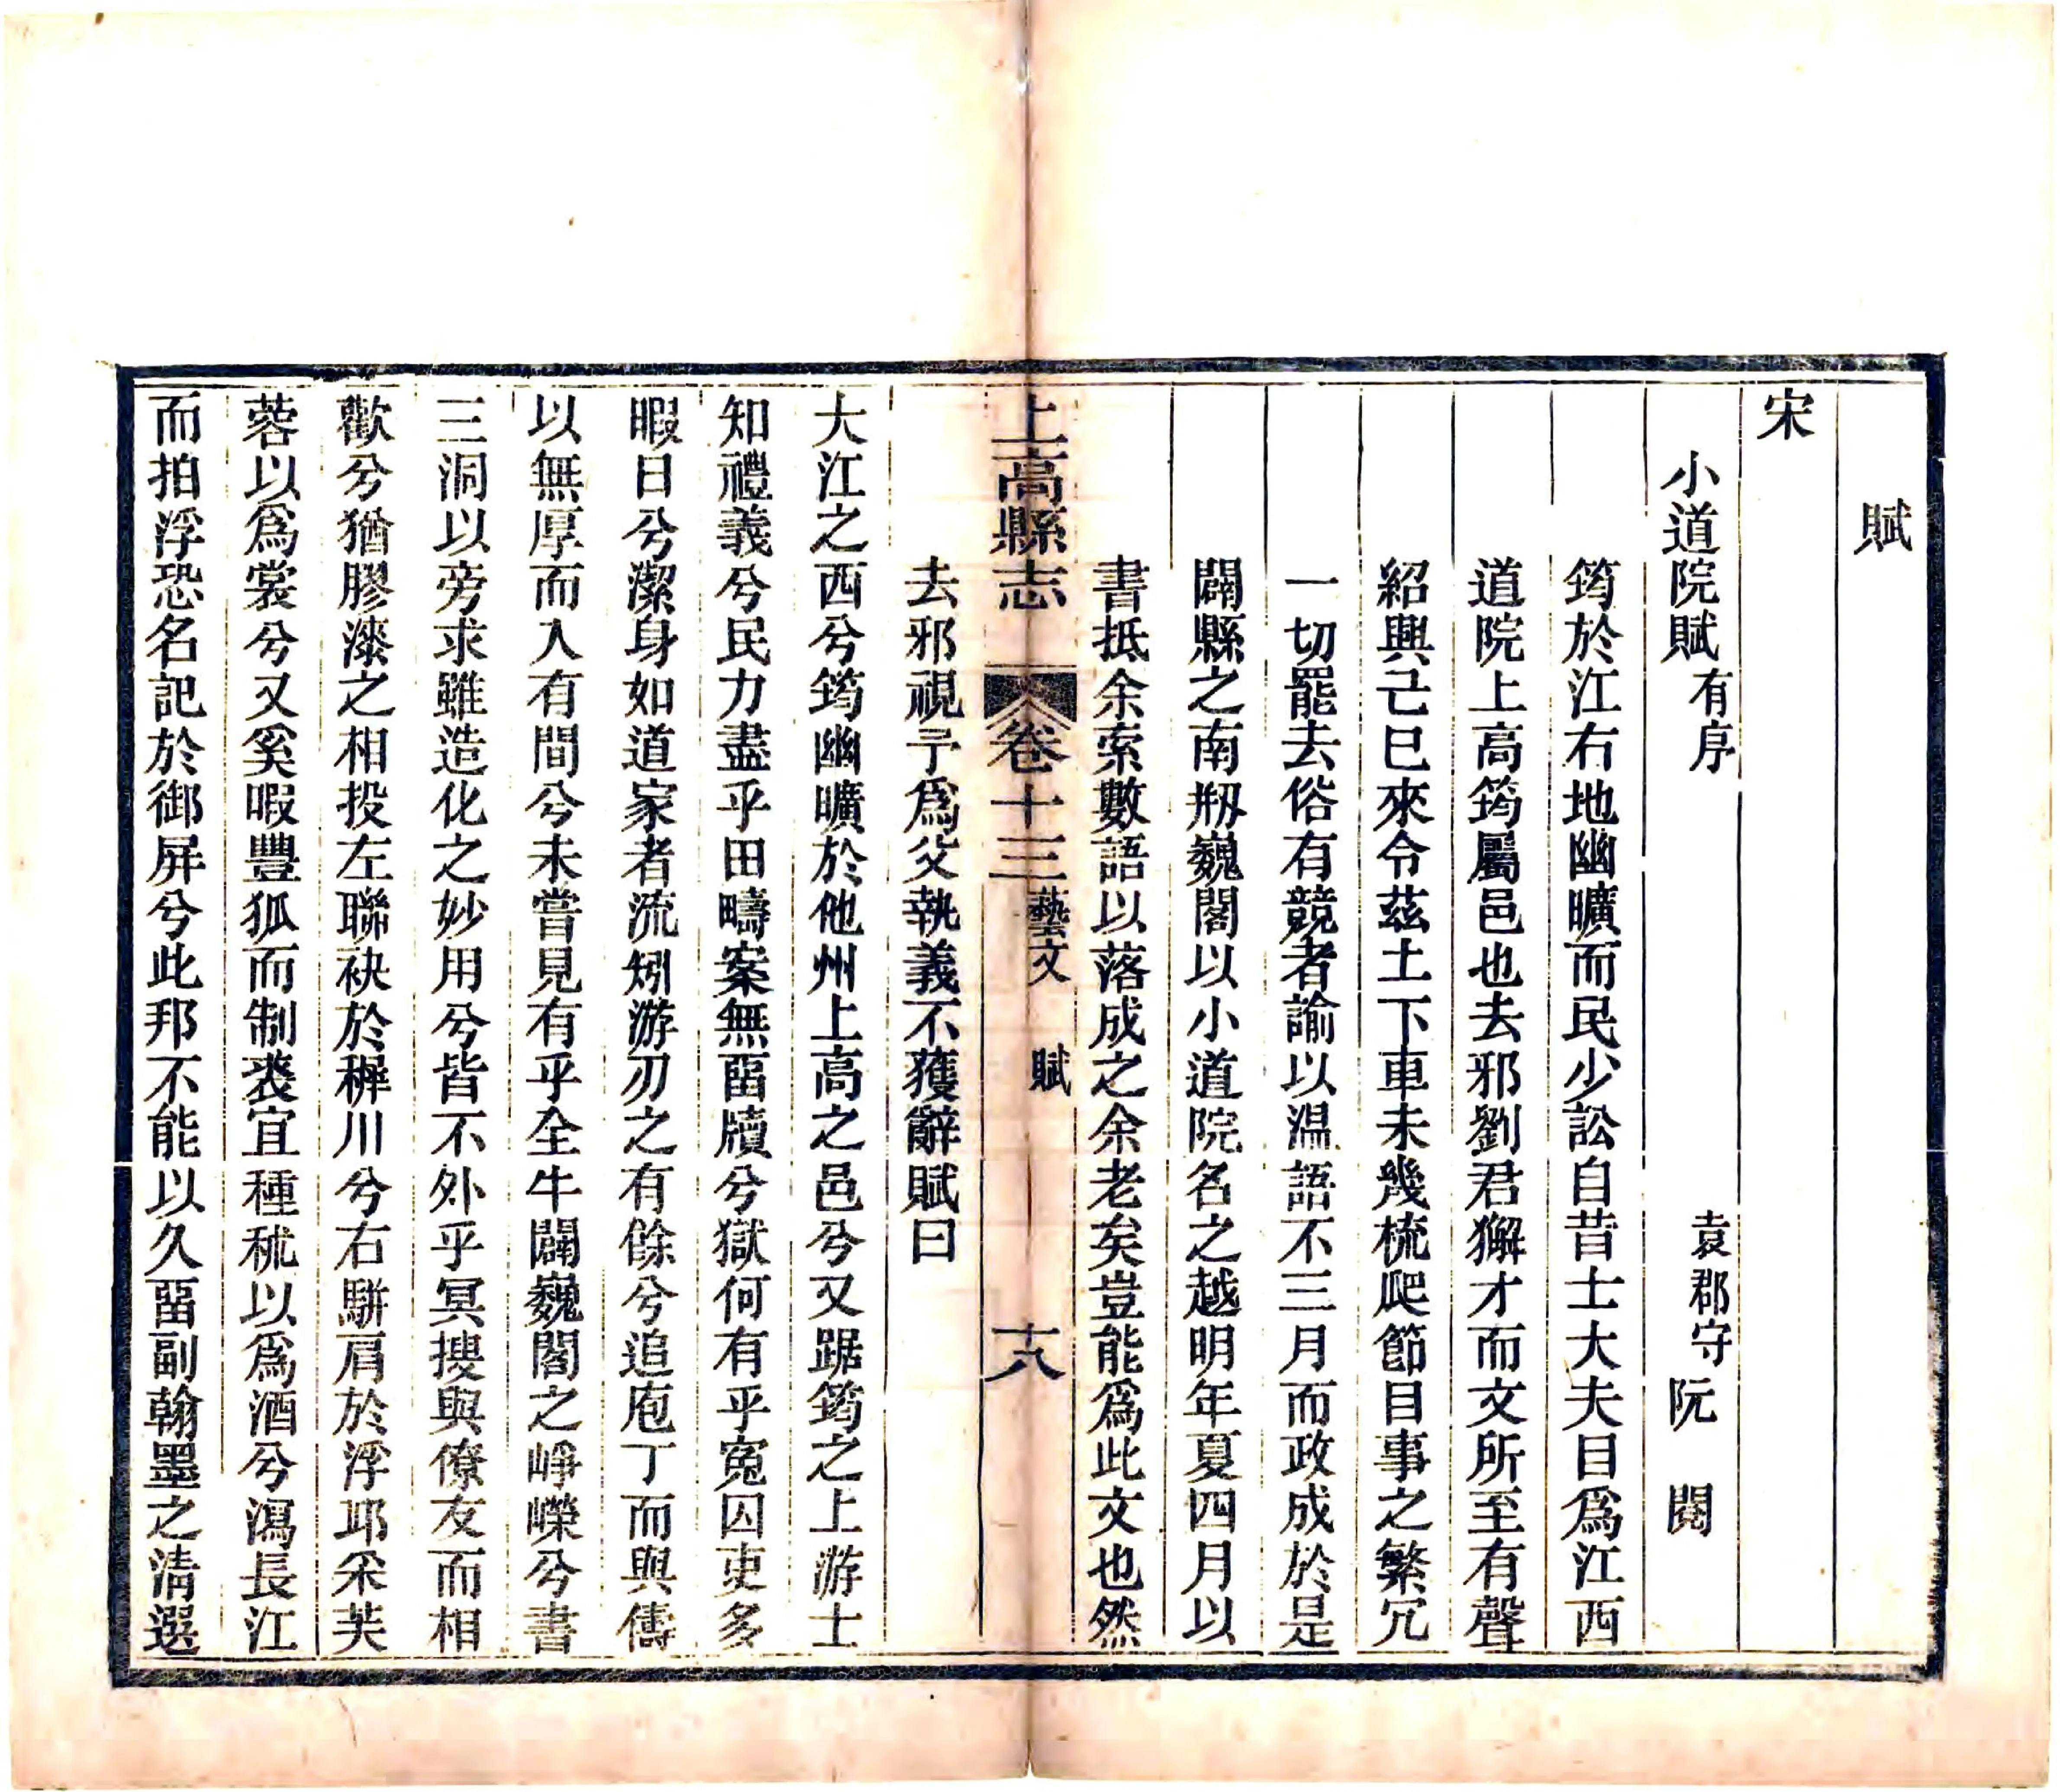 賦
宋
小道院賦有序 袁郡守阮 閱
筠於江右地幽曠而民少訟自昔士大夫目爲江西
道院上高筠屬邑也去邪劉君獬才而文所至有聲
紹興己巳來令茲土下車未幾梳爬節目事之繁冗
一切罷去俗有競者諭以温語不三月而政成於是
闢縣之南剏巍閣以小道院名之越明年夏四月以
書抵余索數語以落成之余老矣豈能爲此文也然
去邪視予爲父執義不獲辭賦曰
上高縣志 卷十三 藝文 賦 十八
大江之西兮筠幽曠於他州上高之邑兮又踞筠之上游士
知禮義兮民力盡乎田疇案無畱牘兮獄何有乎寃囚吏多
暇日兮潔身如道家者流矧游刃之有餘兮追庖丁而與儔
以無厚而入有間兮未嘗見有乎全牛闢巍閣之崢嶸兮書
三洞以旁求雖造化之妙用兮皆不外乎冥搜與僚友而相
歡兮猶膠漆之相投左聯袂於穉川兮右騈肩於浮邱采芙
蓉以爲裳兮又奚暇豐狐而制裘宜種秫以爲酒兮瀉長江
而拍浮恐名記於御屏兮此邦不能以久畱副翰墨之清選